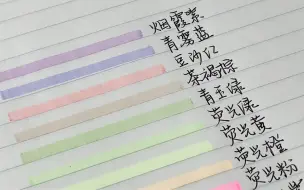 烟霞紫
青雾蓝
豆沙红
茶褐棕
青玉绿
荧光绿
荧光黄
荧光橙
荧光粉